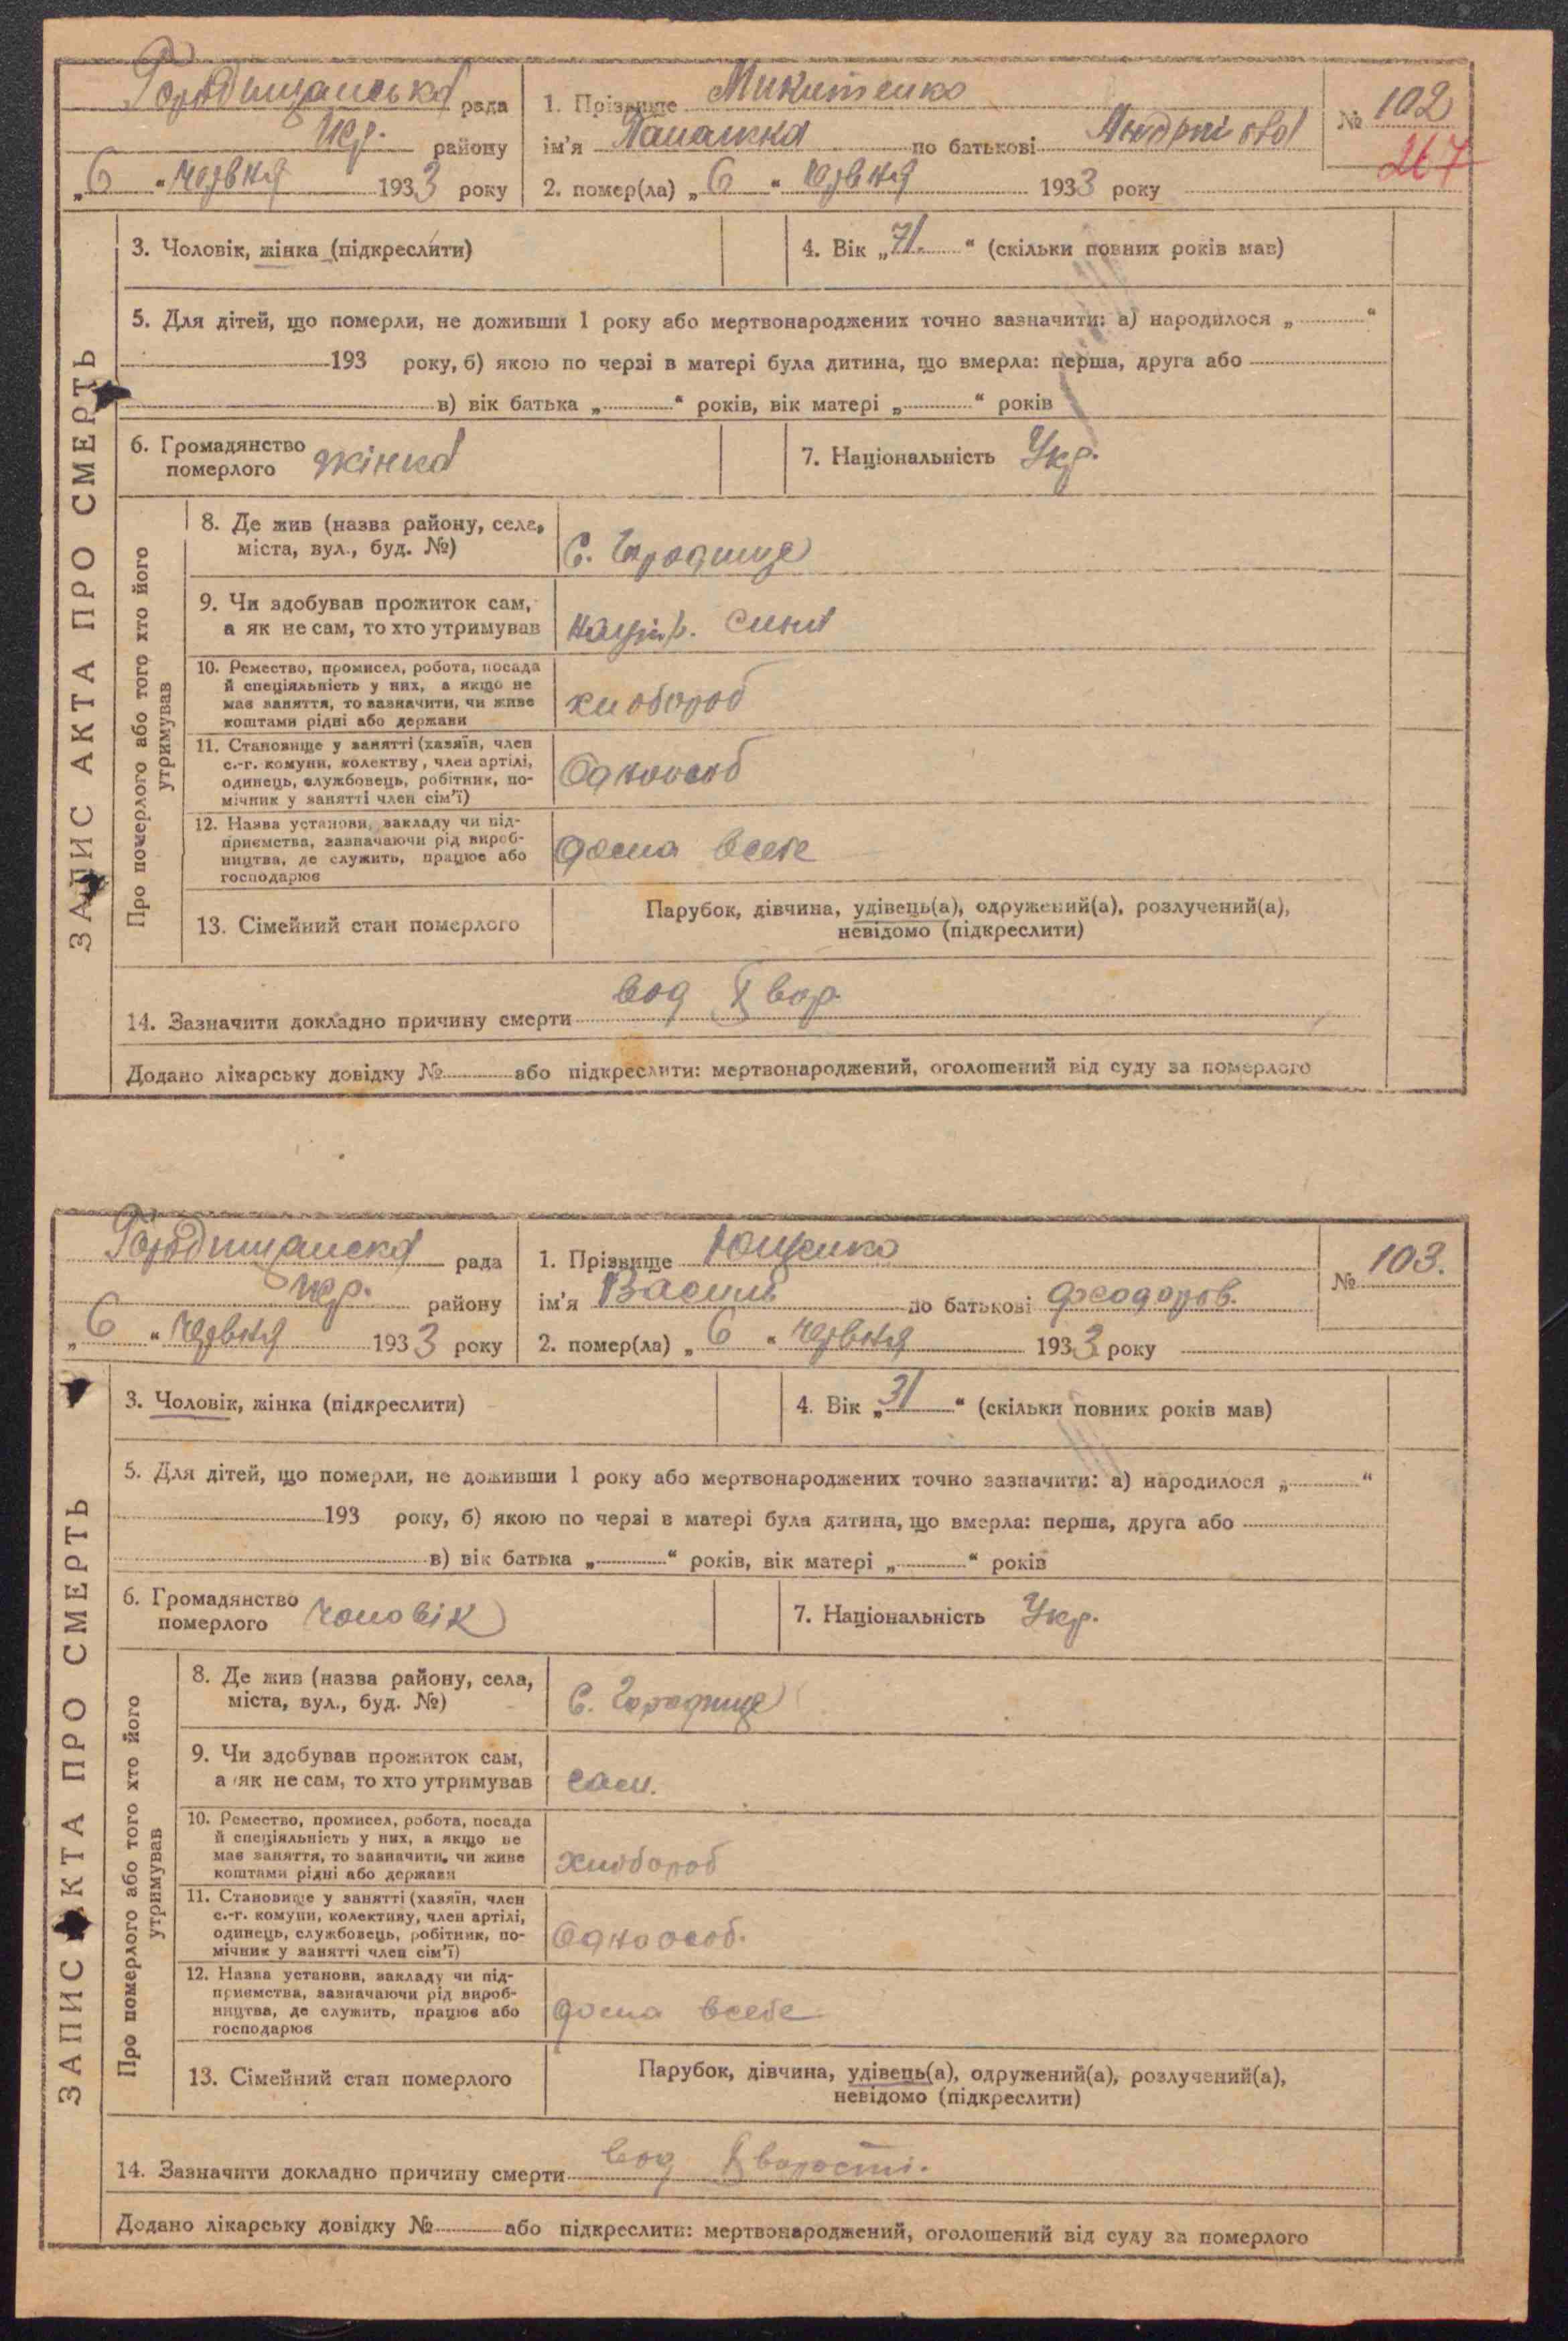 Городищанська рада
район у
„6“ червня 1933 року
1. Прізвище Микитенко
ім'я по батькові
2. помер(ла) „6“ червня 1933 року
№ 102
267
ЗАПИС АКТА ПРО СМЕРТЬ
3. Чоловік, жінка (підкреслити)
4. Вік „71“ (скільки повних років мав)
5. Для дітей, що померли, не доживши 1 року або мертвонароджених точно зазначити: а) народилося „ “
193 року, б) якою по черзі в матері була дитина, що вмерла: перша, друга або
в) вік батька „ “ років, вік матері „ “ років
6. Громадянство
померлого жінка
7. Національність Укр.
Про померлого або того хто його
утримував
8. Де жив (назва району, села,
міста, вул., буд. №)
с. Городище
9. Чи здобував прожиток сам,
а як не сам, то хто утримував
сина
10. Ремество, промисел, робота, посада
й спеціяльність у них, а якщо не
має заняття, то зазначити, чи живе
коштами рідні або держави
хлібороб
11. Становище у занятті (хазяїн, член
с.-г. комуни, колектву, член артілі,
одинець, службовець, робітник, по-
мічник у занятті член сім'ї)
Одноосіб
12. Назва установи, закладу чи під-
приємства, зазначаючи рід вироб-
ництва, де служить, працює або
господарює
дома всебе
13. Сімейний стан померлого
Парубок, дівчина, удівець(а), одружений(а), розлучений(а),
невідомо (підкреслити)
14. Зазначити докладно причину смерти вод хвор.
Додано лікарську довідку № або підкреслити: мертвонароджений, оголошений від суду за померлого
Городищанска рада
району
„6“ червня 1933 року
1. Прізвище Ющенко
ім'я Василь по батькові Феодоров.
2. помер(ла) „6“ червня 1933 року
№ 103.
ЗАПИС АКТА ПРО СМЕРТЬ
3. Чоловік, жінка (підкреслити)
4. Вік „31“ (скільки повних років мав)
5. Для дітей, що померли, не доживши 1 року або мертвонароджених точно зазначити: а) народилося „ “
193 року, б) якою по черзі в матері була дитина, що вмерла: перша, друга або
в) вік батька „ “ років, вік матері „ “ років
6. Громадянство
померлого чоловік
7. Національність Укр.
Про померлого або того хто його
утримував
8. Де жив (назва району, села,
міста, вул., буд. №)
с. Городище
9. Чи здобував прожиток сам,
а як не сам, то хто утримував
сам.
10. Ремество, промисел, робота, посада
й спеціяльність у них, а якщо не
має заняття, то зазначити, чи живе
коштами рідні або держави
хлібороб
11. Становище у занятті (хазяїн, член
с.-г. комуни, колективу, член артілі,
одинець, службовець, робітник, по-
мічник у занятті член сім'ї)
Одноособ.
12. Назва установи, закладу чи під-
приємства, зазначаючи рід вироб-
ництва, де служить, працює або
господарює
дома всебе
13. Сімейний стан померлого
Парубок, дівчина, удівець(а), одружений(а), розлучений(а),
невідомо (підкреслити)
14. Зазначити докладно причину смерти вод хворости.
Додано лікарську довідку № або підкреслити: мертвонароджений, оголошений від суду за померлого